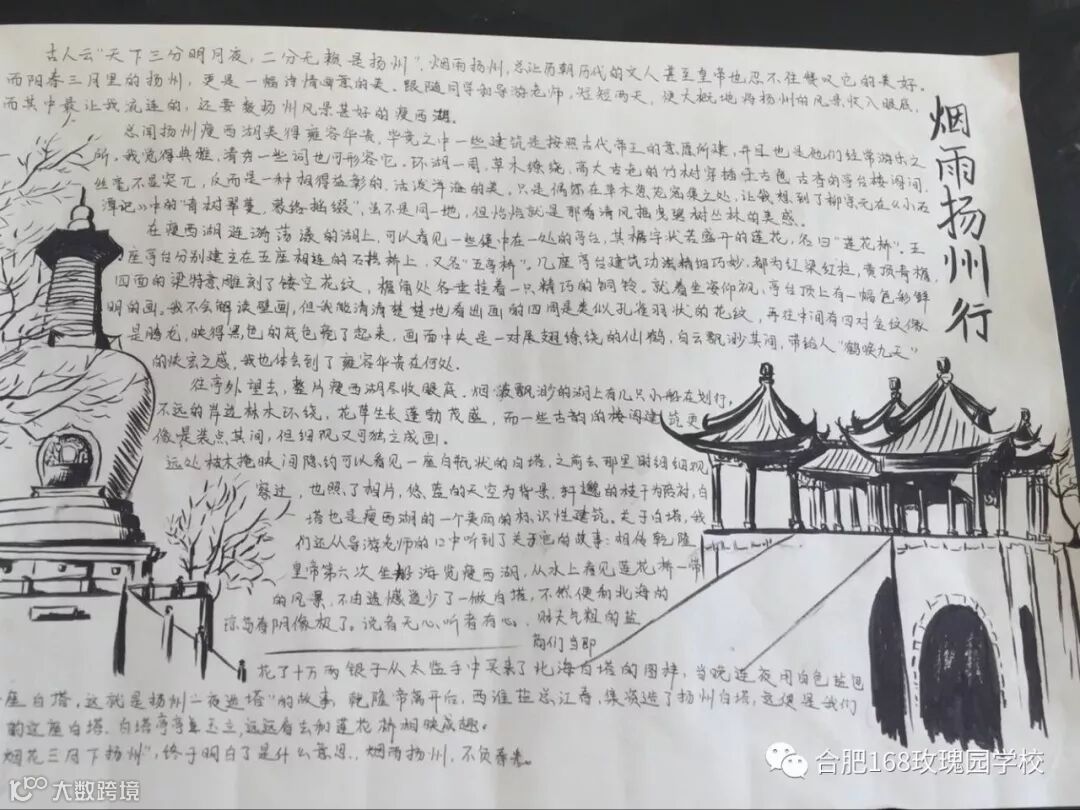 烟雨扬州行
古人云"天下三分明月夜,二分无赖是扬州",烟雨扬州,总让历朝历代的文人甚至皇帝也忍不住赞叹它的美好。
而阳春三月里的扬州,更是一幅诗情画意的美。跟随同学和导游老师,短短两天,便大概地将扬州的风景收入眼底,
而其中最让我流连的,还要数扬州风景甚好的瘦西湖。
总闻扬州瘦西湖美得雍容华贵,毕竟之中一些建筑是按照古代帝王的意愿所建,并且也是他们经常游乐之
所,我觉得典雅,清秀一些词也可形容它,环湖一周,草木缭绕,高大古色的竹树穿插于古色古香的亭台楼阁间,
丝毫不显突兀,反而是一种相得益彰的,活泼洋溢的美。只是偶尔在草木葱花密集之处,让我想到了柳宗元在《小石
潭记》中的"青树翠蔓,蒙络摇缀",虽不是同一地,但恰恰就是那着清风拖曳翠树丛林的美感。
在瘦西湖涟漪荡漾的湖上,可以看见一些集中在一处的亭台,其檐宇状若盛开的莲花,名曰"莲花桥"。五
座亭台分别建立在五座相连的石拱桥上,又名"五亭桥"。几座亭台建筑功法精细巧妙,都为红梁红柱,黄顶青檐,
四面的梁特意雕刻了镂空花纹,檐角处各垂挂着一只精巧的铜铃。就着坐姿仰视,亭台顶上有一幅色彩鲜
明的画。我不会解读壁画,但我能清清楚楚地看出画的四周是类似孔雀羽状的花纹,再往中间有四对金纹像
是腾龙,映得黑色的底色亮了起来,画面中央是一对尾翅缭绕的仙鹤,白云飘渺其间,带给人"鹤唳九天"
的恢宏之感,我也体会到了雍容华贵在何处。
往亭外望去,整片瘦西湖尽收眼底。烟波飘渺的湖上有几只小船在划行,
不远的岸边林木环绕,花草生长蓬勃茂盛,而一些古韵的楼阁建筑更
像是装点其间,但细观又可独立成画。
远处林木掩映间隐约可以看见一座白瓶状的白塔,之前去那里时细细观
察过,也照了相片,悠蓝的天空为背景,纤邈的枝干为陪衬,白
塔也是瘦西湖的一个美丽的标识性建筑。关于白塔,我
们还从导游老师的口中听到了关于它的故事:相传乾隆
皇帝第六次坐船游览瘦西湖,从水上看见莲花桥一带
的风景,不由遗憾道少了一做白塔,不然便和北海的
琼岛春阴像极了。说者无心,听者有心,财大气粗的盐
商们当即
花了十万两银子从太监手中买来了北海白塔的图样,当晚连夜用白色盐包
座白塔,这就是扬州"一夜造塔"的故事,乾隆帝离开后,两淮盐总江春,集资造了扬州白塔,这便是我们
的这座白塔。白塔亭亭玉立,远远看去和莲花桥相映成趣。
烟花三月下扬州",终于明白了是什么意思。烟雨扬州,不负春光。
合肥168玫瑰园学校
大数跨境